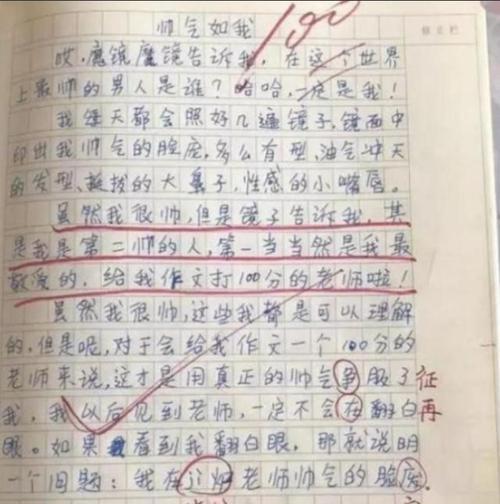 帅气如我
100
修文栏
哎,魔镜魔镜告诉我,在这个世界
上最帅的男人是谁?哈哈,一定是我!
我每天都会照好几遍镜子,镜面中
印出我帅气的脸庞,多么有型,油气冲天
的发型、挺拔的大鼻子,性感的小嘴唇。
虽然我很帅,但是镜子告诉我,其
是我是第二帅的人,第一当当然是我最
敬爱的,给我作文打100分的老师啦!
虽然我很帅,这些我都是可以理解
的,但是呢,对于会给我作文一个100分的
老师来说,这才是用真正的帅气争服了 征
我,我以后见到老师,一定不会在翻白 再
眼。如果看到我翻白眼,那就说明
一个问题:我在 老师帅气的脸庞。